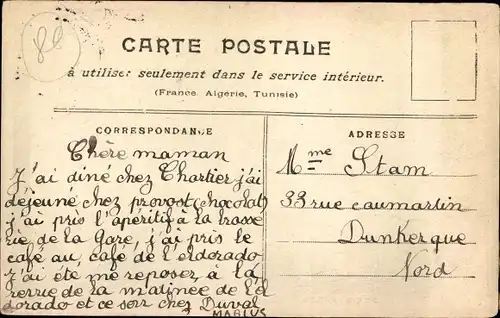 CARTE POSTALE
à utiliser seulement dans le service intérieur.
(France, Algérie, Tunisie)
CORRESPONDANCE
Chère maman
J'ai diné chez Chartier j'ai
déjeuné chez provost (chocolat)
j'ai pris l'apéritif à la brasse
rie de la Gare, j'ai pris le
café au, café de l'eldorado
J'ai été me reposez à la
rerrie de la matinee de l'el
dorado et ce soir chez Duval
MARIUS
ADRESSE
Mme Stam
33 rue caumartin
Dunkerque
Nord